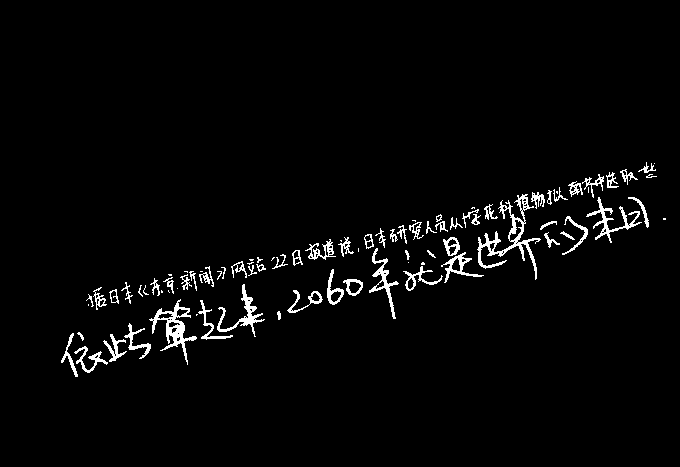 据日本《东京新闻》网站22日报道说,日本研究人员从十字花科植物拟南芥中选取一些
依此算起来,2060年就是世界的末日.